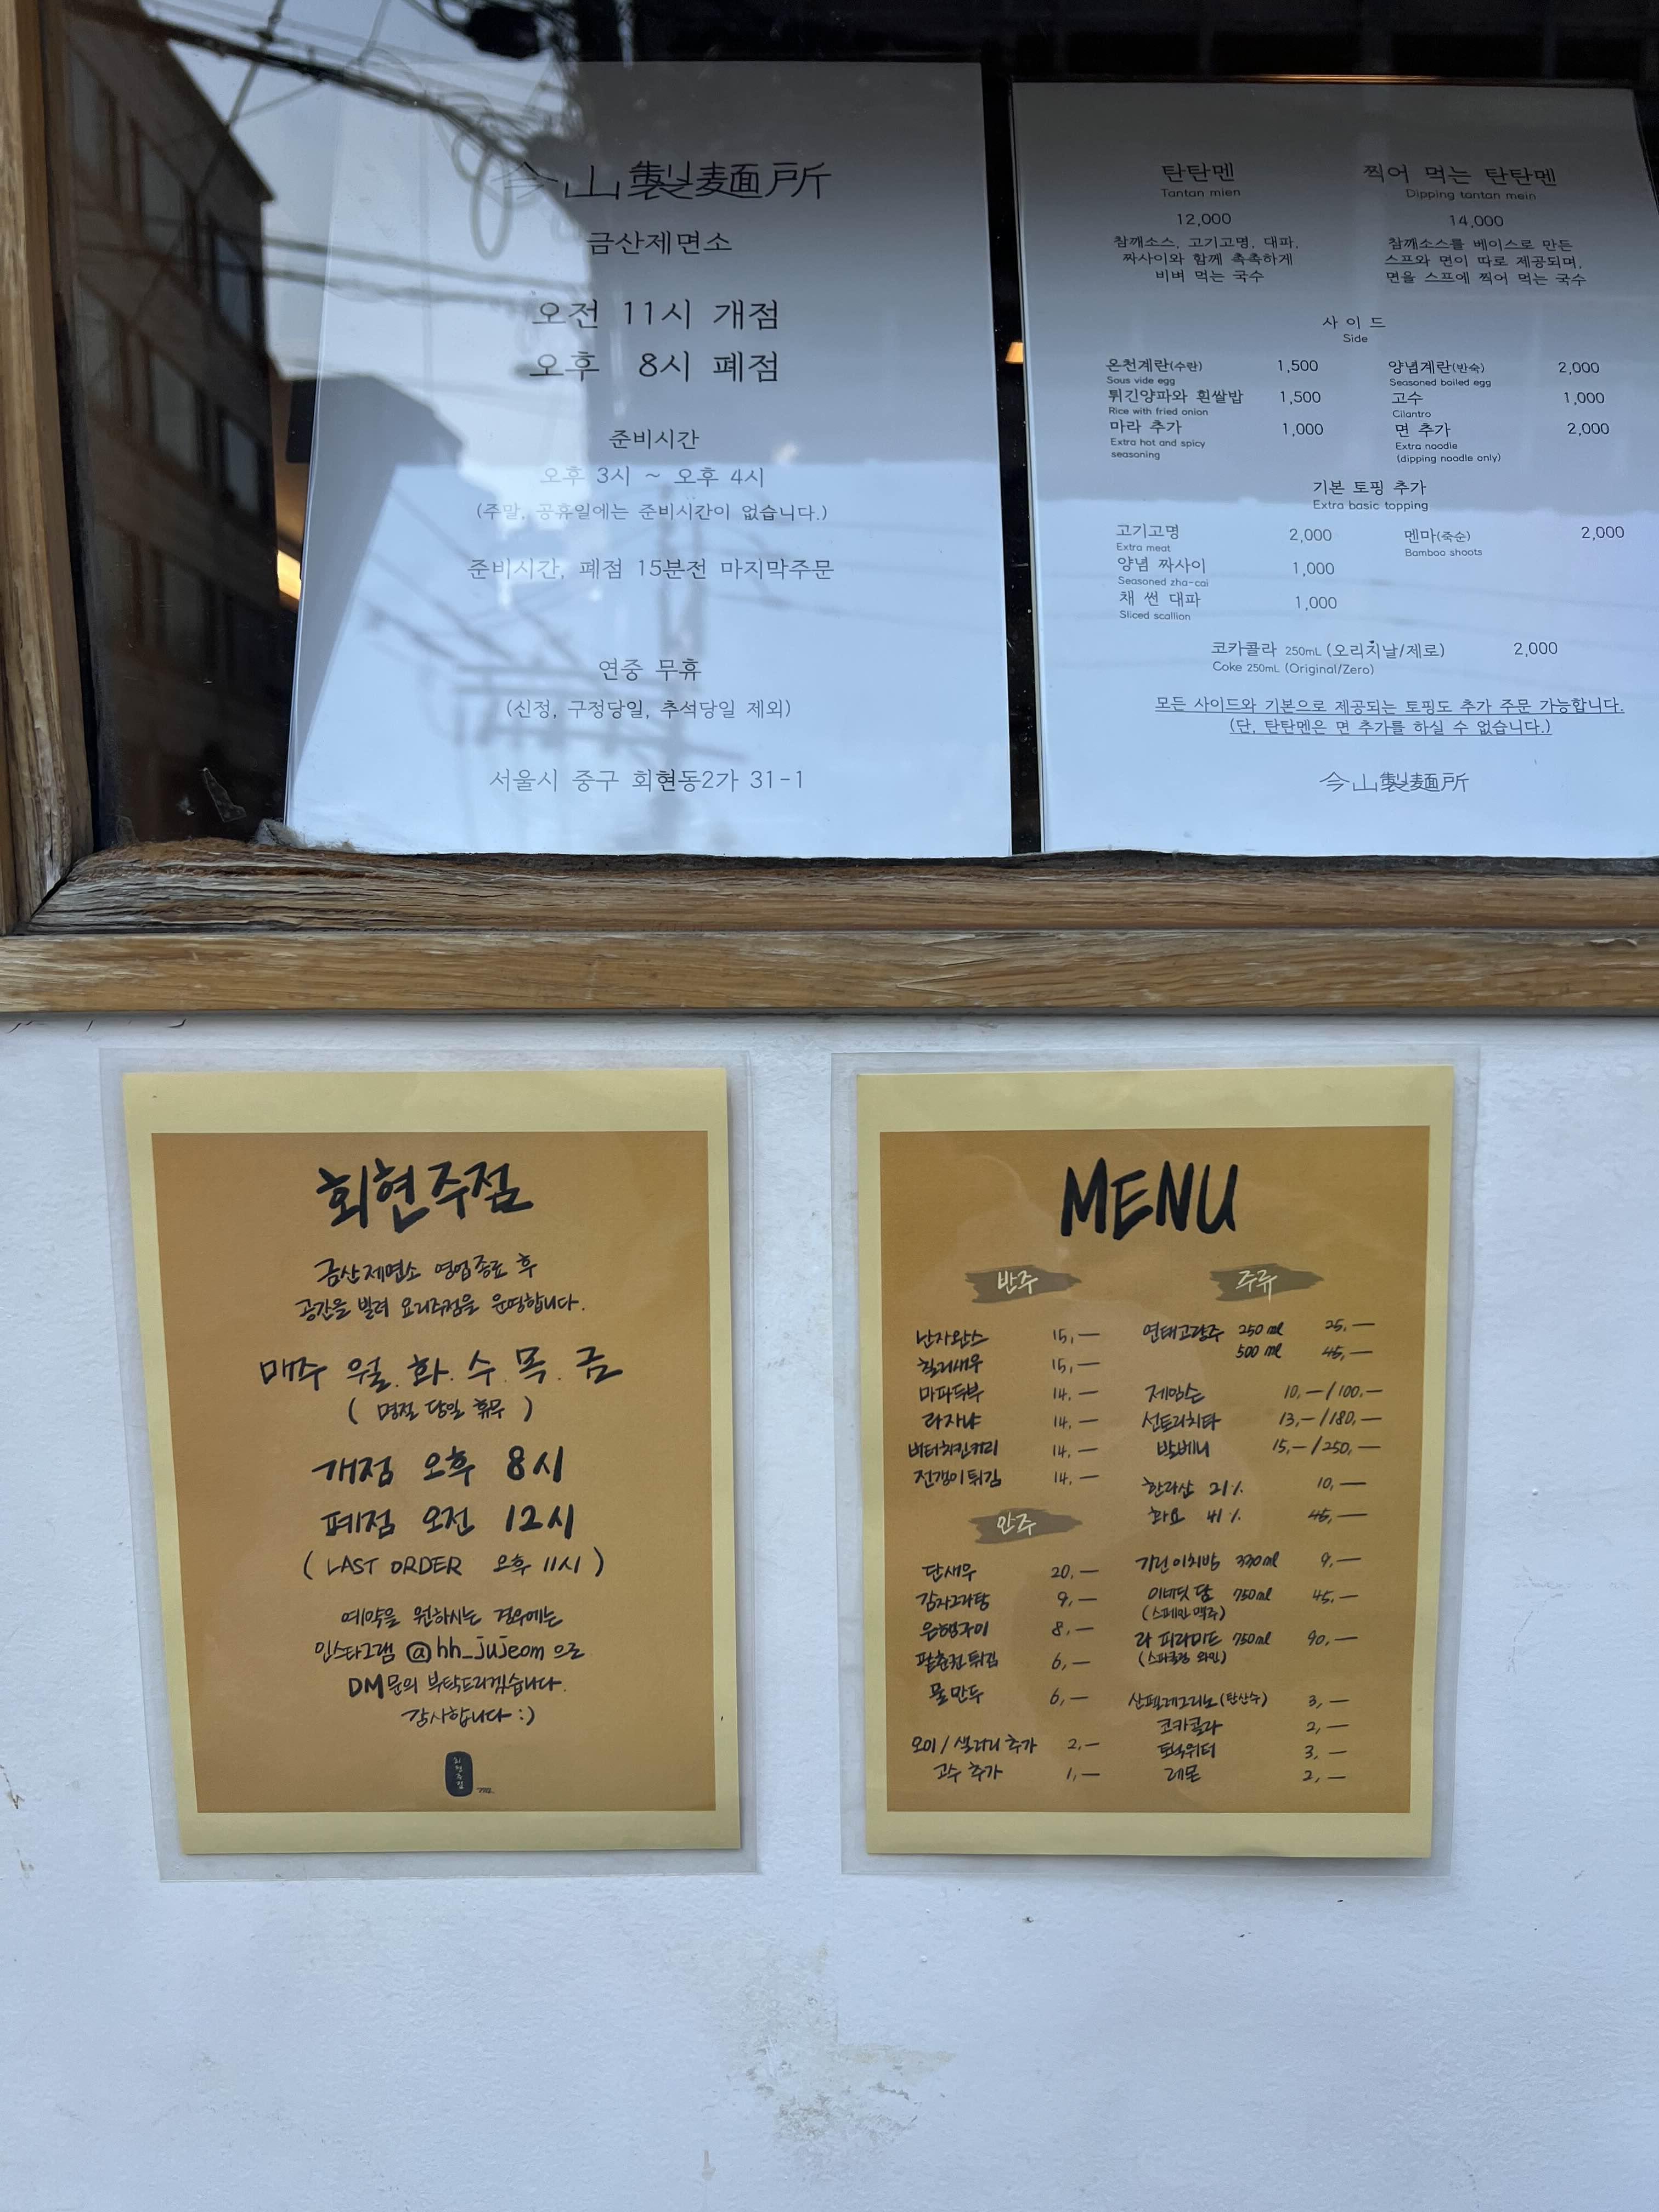 今山製麵所
금산제면소
오전 11시 개점
오후 8시 폐점
준비시간
오후 3시 ~ 오후 4시
(주말, 공휴일에는 준비시간이 없습니다.)
준비시간, 폐점 15분전 마지막주문
연중 무휴
(신정, 구정당일, 추석당일 제외)
서울시 중구 회현동2가 31-1
탄탄멘
Tantan mien
12,000
참깨소스, 고기고명, 대파,
짜사이와 함께 촉촉하게
비벼 먹는 국수
찍어 먹는 탄탄멘
Dipping tantan mein
14,000
참깨소스를 베이스로 만든
스프와 면이 따로 제공되며,
면을 스프에 찍어 먹는 국수
사이드
Side
온천계란(수란) 1,500
Sous vide egg
튀긴양파와 흰쌀밥 1,500
Rice with fried onion
마라 추가 1,000
Extra hot and spicy
seasoning
양념계란(반숙) 2,000
Seasoned boiled egg
고수 1,000
Cilantro
면 추가 2,000
Extra noodle
(dipping noodle only)
기본 토핑 추가
Extra basic topping
고기고명 2,000
Extra meat
양념 짜사이 1,000
Seasoned zha-cai
채 썬 대파 1,000
Sliced scallion
멘마(죽순) 2,000
Bamboo shoots
코카콜라 250mL (오리지날/제로) 2,000
Coke 250mL (Original/Zero)
모든 사이드와 기본으로 제공되는 토핑도 추가 주문 가능합니다.
(단, 탄탄멘은 면 추가를 하실 수 없습니다.)
今山製麵所
회현주점
금산제면소 영업종료 후
공간을 빌려 요리주점을 운영합니다.
매주 월.화.수.목.금
( 명절 당일 휴무 )
개점 오후 8시
폐점 오전 12시
( LAST ORDER 오후 11시 )
예약을 원하시는 경우에는
인스타그램 @hh_jujeom 으로
DM문의 부탁드리겠습니다.
감사합니다 :)
회현주점
MENU
반주
난자완스 15,—
칠리새우 15,—
마파두부 14,—
라자냐 14,—
버터치킨커리 14,—
전갱이튀김 14,—
안주
단새우 20,—
감자고라탕 9,—
은행구이 8,—
팥춘권튀김 6,—
물만두 6,—
오이/샐러리 추가 2,—
고수 추가 1,—
주류
연태고량주 250ml 25,—
500ml 45,—
제임슨 10,—/100,—
산토리치타 13,—/180,—
발베니 15,—/250,—
한라산 21% 10,—
화요 41% 45,—
기린이치방 330ml 9,—
이네딧 담 750ml 45,—
(스페인 맥주)
라 피라미드 750ml 90,—
(스파클링 와인)
산펠레그리노(탄산수) 3,—
코카콜라 2,—
토닉워터 3,—
레몬 2,—